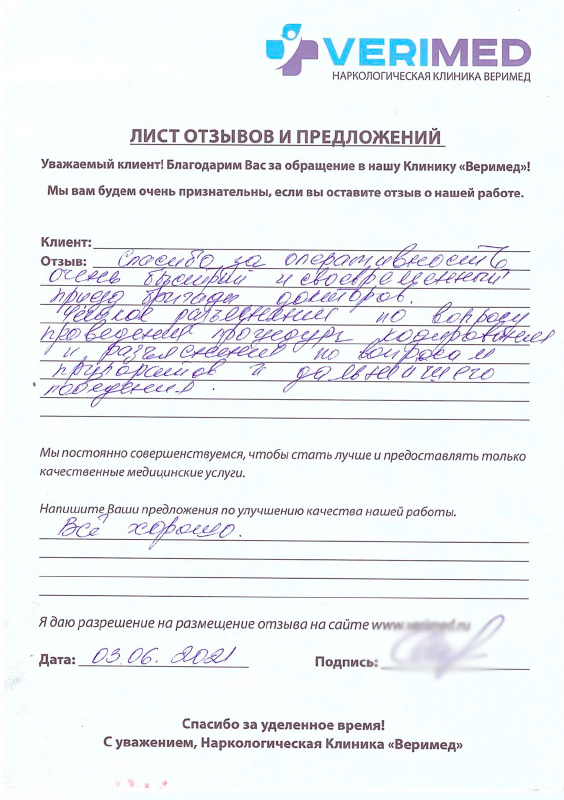 VERIMED
НАРКОЛОГИЧЕСКАЯ КЛИНИКА ВЕРИМЕД
ЛИСТ ОТЗЫВОВ И ПРЕДЛОЖЕНИЙ
Уважаемый клиент! Благодарим Вас за обращение в нашу Клинику «Веримед»!
Мы вам будем очень признательны, если вы оставите отзыв о нашей работе.
Клиент:
Отзыв: Спасибо за оперативность
очень быстрый и своевременный
приезд бригады докторов.
Чёткое разъяснения по вопросу
проведения процедуры кодирования
и разъяснения по вопросам
препаратов и дальнейшего
поведения.
Мы постоянно совершенствуемся, чтобы стать лучше и предоставлять только
качественные медицинские услуги.
Напишите Ваши предложения по улучшению качества нашей работы.
Всё хорошо.
Я даю разрешение на размещение отзыва на сайте www.verimed.ru
Дата: 03.06. 2021 Подпись:
Спасибо за уделенное время!
С уважением, Наркологическая Клиника «Веримед»